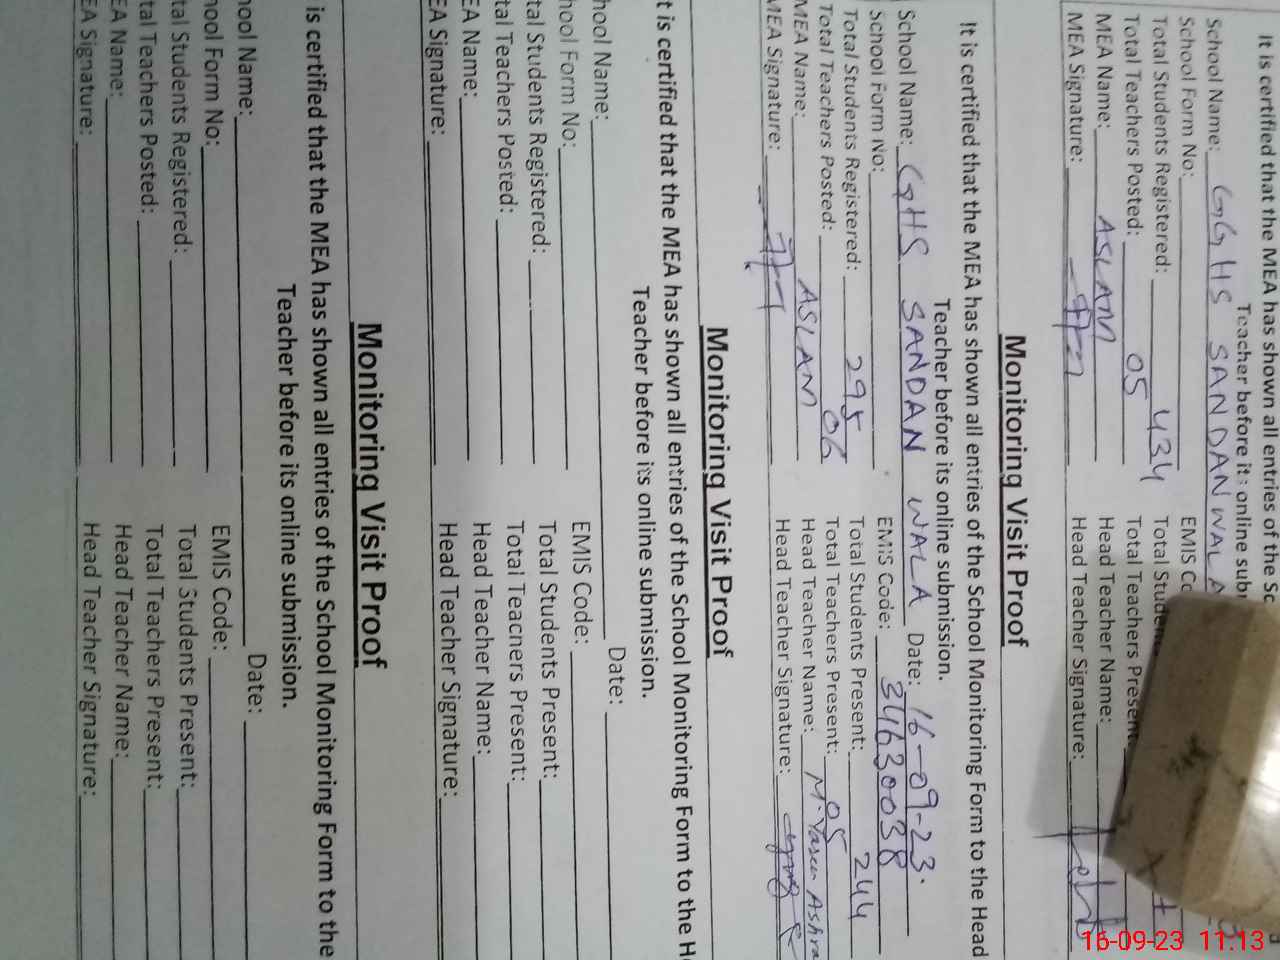 It is certified that the MEA has shown all entries of the Sc
Teacher before its online sub
School Name: GGHS SANDANWALA
School Form No: EMIS Co
Total Students Registered: 434 Total Stude
Total Teachers Posted: 05 Total Teachers Present
MEA Name: ASLAM Head Teacher Name:
MEA Signature: Head Teacher Signature:
Monitoring Visit Proof
It is certified that the MEA has shown all entries of the School Monitoring Form to the Head
Teacher before its online submission.
School Name: GHS SANDAN WALA Date: 16-09-23.
School Form No: EMIS Code: 34630038
Total Students Registered: 295 Total Students Present: 244
Total Teachers Posted: 06 Total Teachers Present: 05
MEA Name: ASLAM Head Teacher Name: M. Yaseen Ashra
MEA Signature: Head Teacher Signature:
Monitoring Visit Proof
t is certified that the MEA has shown all entries of the School Monitoring Form to the H
Teacher before its online submission.
hool Name: Date:
hool Form No: EMIS Code:
tal Students Registered: Total Students Present:
tal Teachers Posted: Total Teachers Present:
EA Name: Head Teacher Name:
EA Signature: Head Teacher Signature:
Monitoring Visit Proof
is certified that the MEA has shown all entries of the School Monitoring Form to the
Teacher before its online submission.
ool Name: Date:
ool Form No: EMIS Code:
tal Students Registered: Total Students Present:
tal Teachers Posted: Total Teachers Present:
EA Name: Head Teacher Name:
EA Signature: Head Teacher Signature:
16-09-23 11:13